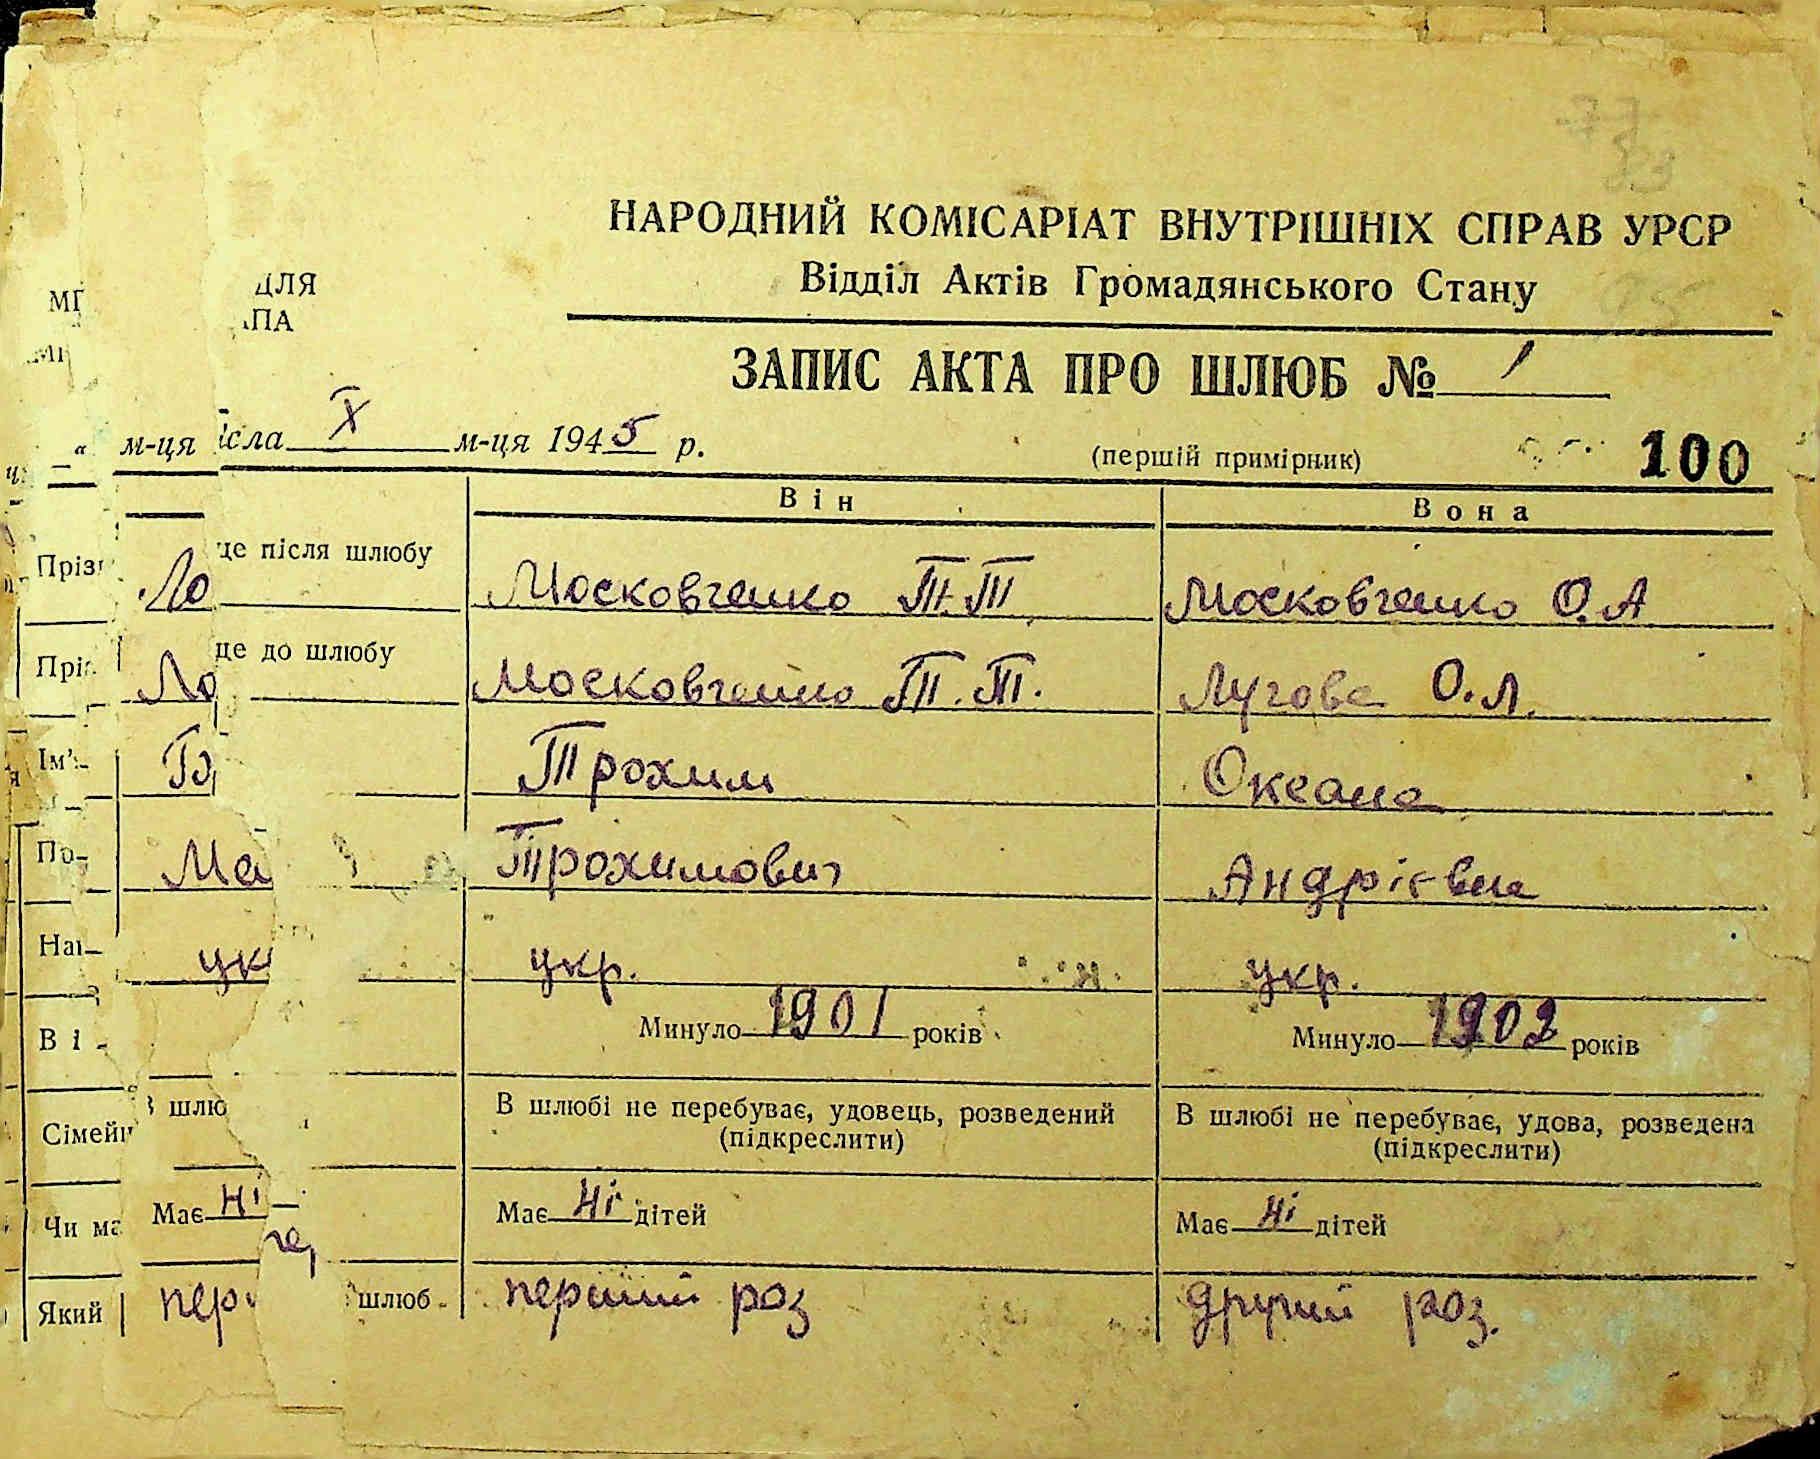 НАРОДНИЙ КОМІСАРІАТ ВНУТРІШНІХ СПРАВ УРСР
Відділ Актів Громадянського Стану
ДЛЯ
ЗАПИС АКТА ПРО ШЛЮБ № 1
м-ця X м-ця 1945 р. (перший примірник) 100
Він Вона
після шлюбу Московченко Т.Т Московченко О.А
до шлюбу Московченко Т.Т. Лугова О.А.
Ім'я Трохим Океана
По- Трохимович Андрієвна
укр. укр.
Минуло 1901 років Минуло 1902 років
В шлюбі не перебуває, удовець, розведений В шлюбі не перебуває, удова, розведена
(підкреслити) (підкреслити)
Має ні Має ні дітей Має ні дітей
Чи
Який шлюб перший раз другий раз.